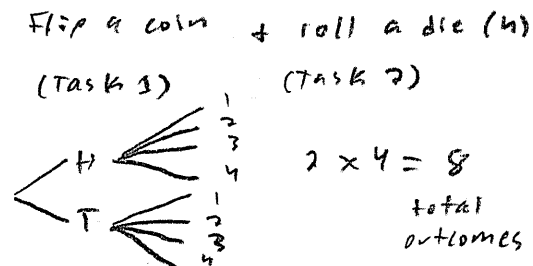 Flip a coin + roll a die (4)
(Task 1) (Task 2)
H
1
2
3
4
T
1
2
3
4
2 x 4 = 8
total
outcomes